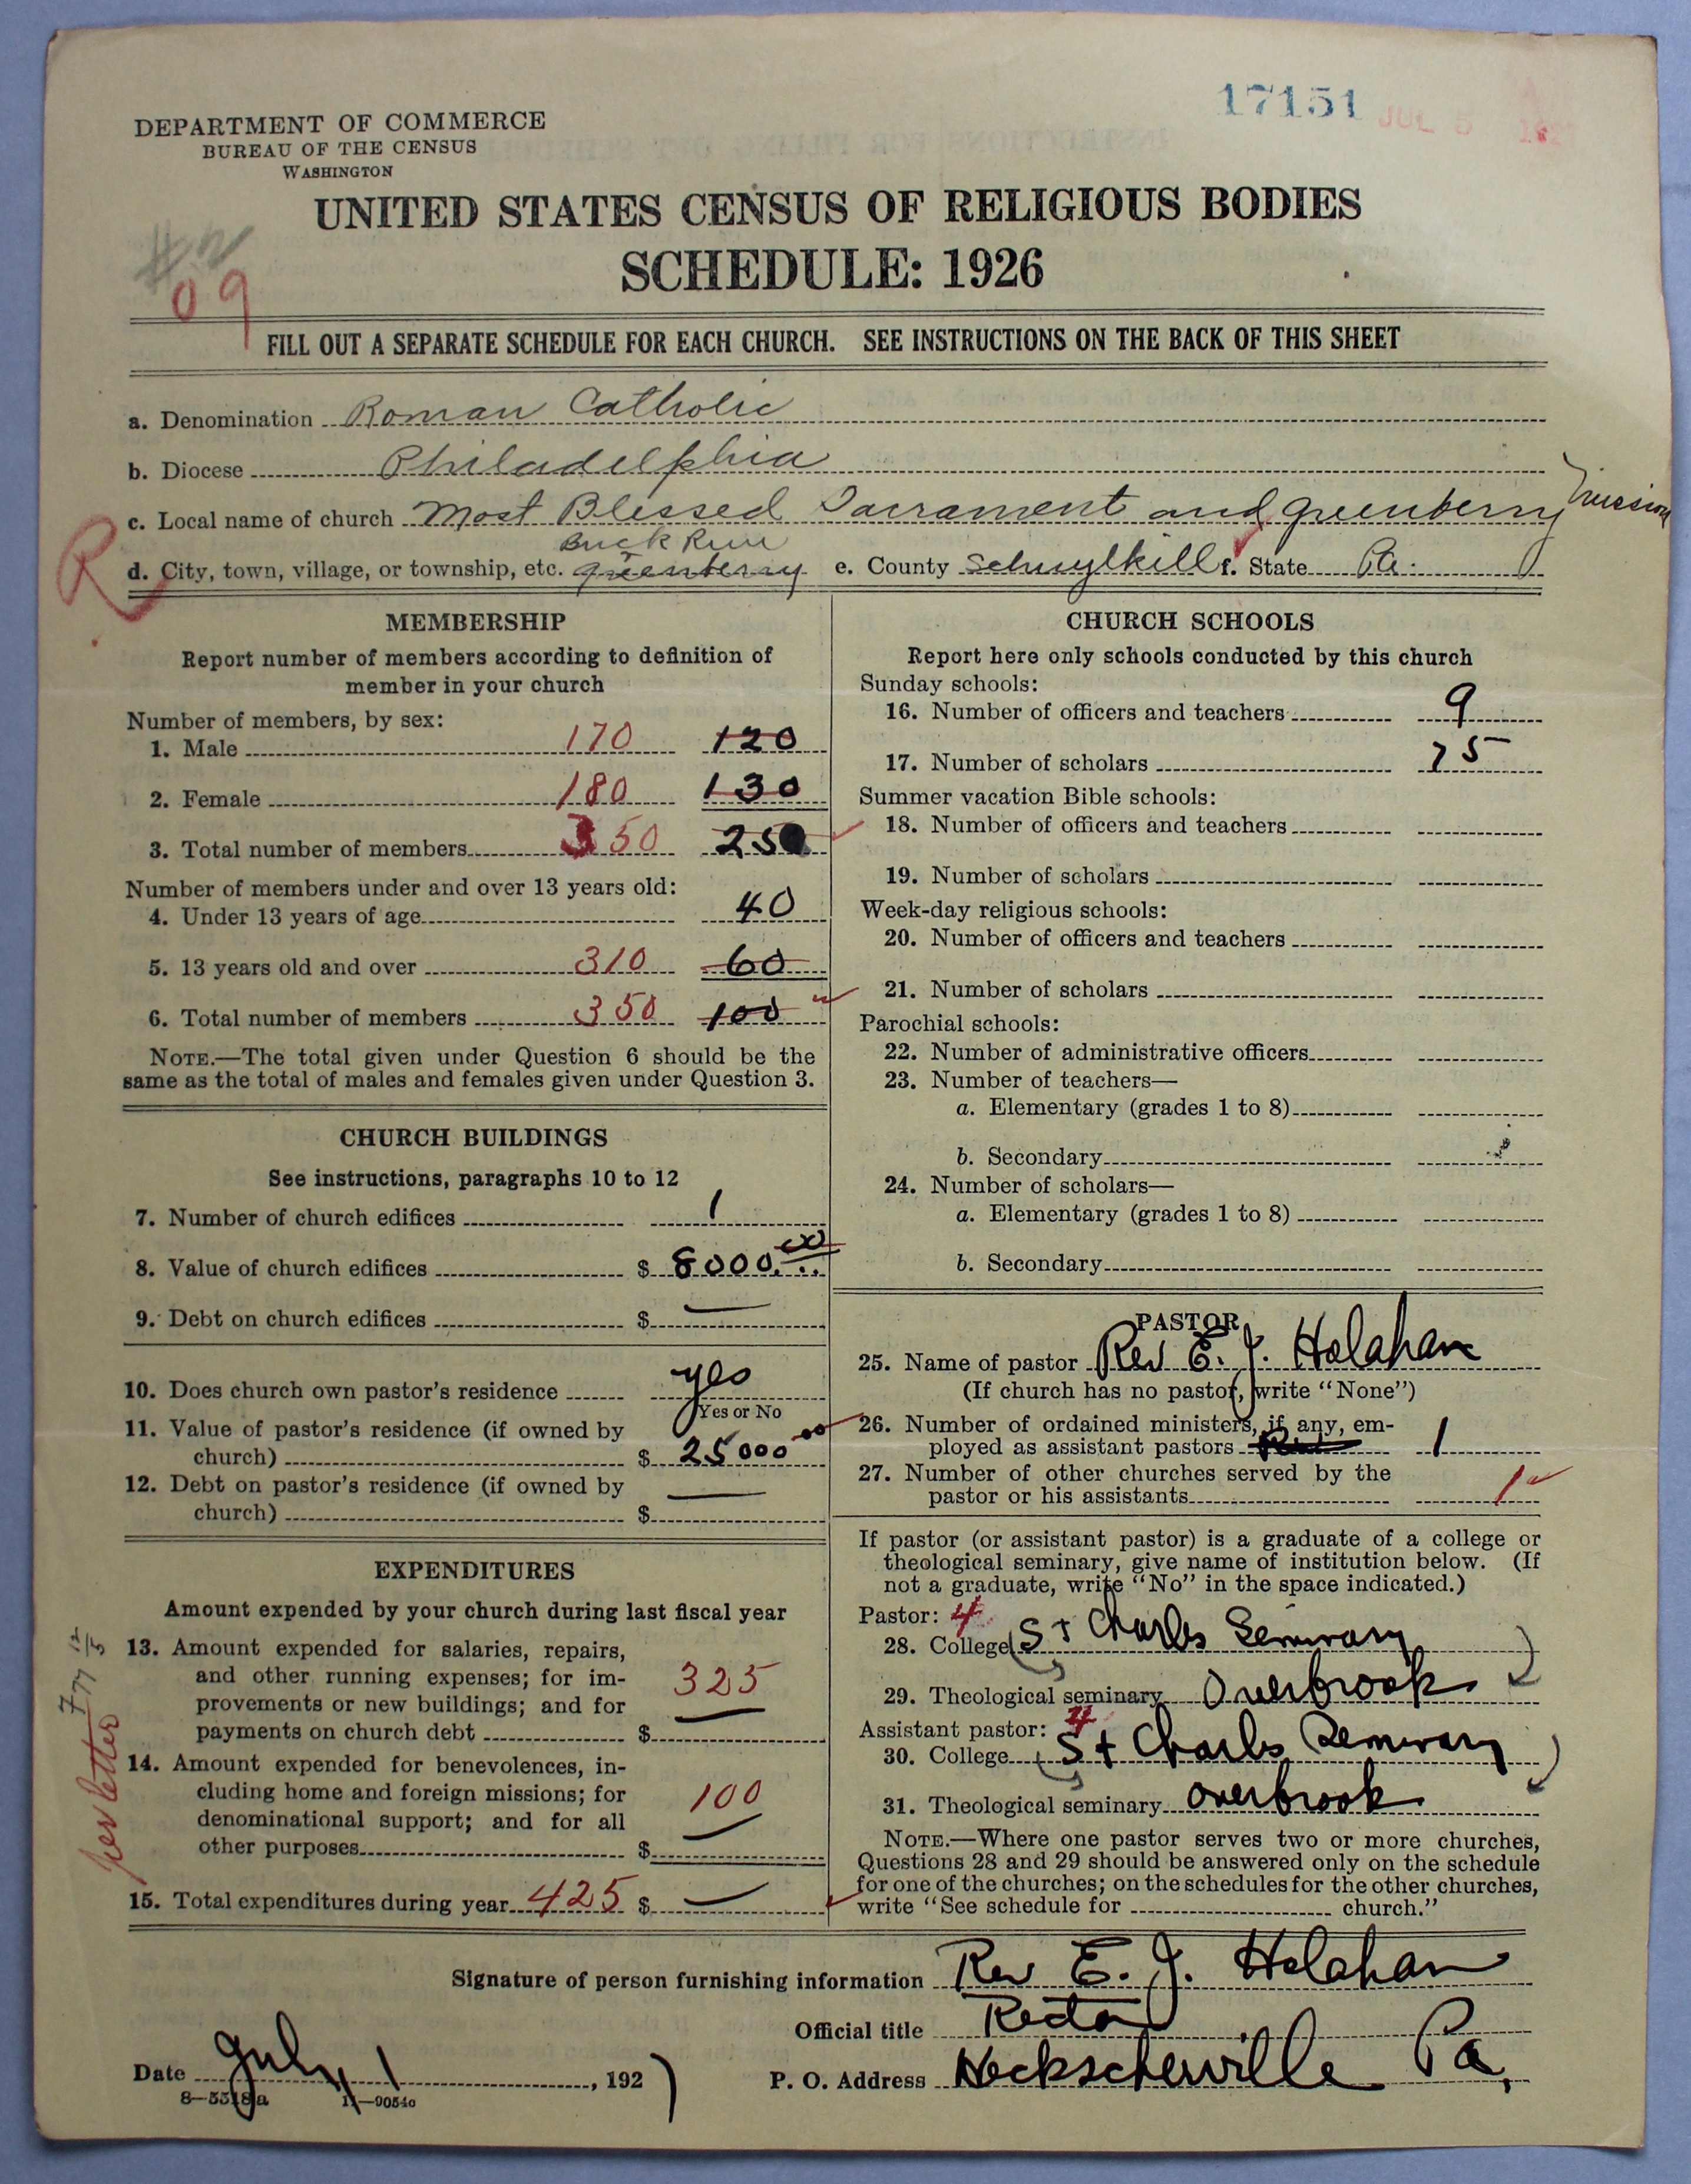 17151 JUL 5
DEPARTMENT OF COMMERCE
BUREAU OF THE CENSUS
WASHINGTON
UNITED STATES CENSUS OF RELIGIOUS BODIES
SCHEDULE: 1926
09
FILL OUT A SEPARATE SCHEDULE FOR EACH CHURCH. SEE INSTRUCTIONS ON THE BACK OF THIS SHEET
a. Denomination Roman Catholic
b. Diocese Philadelphia
c. Local name of church Most Blessed Sacrament and Greenberry Mission
Buck Run
R d. City, town, village, or township, etc. Greenberry e. County Schuylkill f. State Pa.
MEMBERSHIP
Report number of members according to definition of
member in your church
Number of members, by sex:
1. Male 170 120
2. Female 180 130
3. Total number of members 350 250
Number of members under and over 13 years old:
4. Under 13 years of age 40
5. 13 years old and over 310 60
6. Total number of members 350 100
NOTE.—The total given under Question 6 should be the
same as the total of males and females given under Question 3.
CHURCH BUILDINGS
See instructions, paragraphs 10 to 12
7. Number of church edifices 1
8. Value of church edifices $ 8000.00
9. Debt on church edifices $ —
10. Does church own pastor's residence yes
Yes or No
11. Value of pastor's residence (if owned by
church) $ 25000 00
12. Debt on pastor's residence (if owned by
church) $ —
EXPENDITURES
Amount expended by your church during last fiscal year
13. Amount expended for salaries, repairs,
and other running expenses; for im-
provements or new buildings; and for
payments on church debt $ 325
14. Amount expended for benevolences, in-
cluding home and foreign missions; for
denominational support; and for all
other purposes $ 100
15. Total expenditures during year 425 $ —
per letter
CHURCH SCHOOLS
Report here only schools conducted by this church
Sunday schools:
16. Number of officers and teachers 9
17. Number of scholars 75
Summer vacation Bible schools:
18. Number of officers and teachers
19. Number of scholars
Week-day religious schools:
20. Number of officers and teachers
21. Number of scholars
Parochial schools:
22. Number of administrative officers
23. Number of teachers—
a. Elementary (grades 1 to 8)
b. Secondary
24. Number of scholars—
a. Elementary (grades 1 to 8)
b. Secondary
PASTOR
25. Name of pastor Rev E. J. Holahan
(If church has no pastor, write "None")
26. Number of ordained ministers, if any, em-
ployed as assistant pastors 1
27. Number of other churches served by the
pastor or his assistants 1
If pastor (or assistant pastor) is a graduate of a college or
theological seminary, give name of institution below. (If
not a graduate, write "No" in the space indicated.)
Pastor: 4
28. College St Charles Seminary
29. Theological seminary Overbrook
Assistant pastor: 4
30. College St Charles Seminary
31. Theological seminary Overbrook
NOTE.—Where one pastor serves two or more churches,
Questions 28 and 29 should be answered only on the schedule
for one of the churches; on the schedules for the other churches,
write "See schedule for church."
Signature of person furnishing information Rev E. J. Holahan
Official title Rector
Date July 1, 1927
P. O. Address Heckscherville Pa.
8—5518a 11—9054c